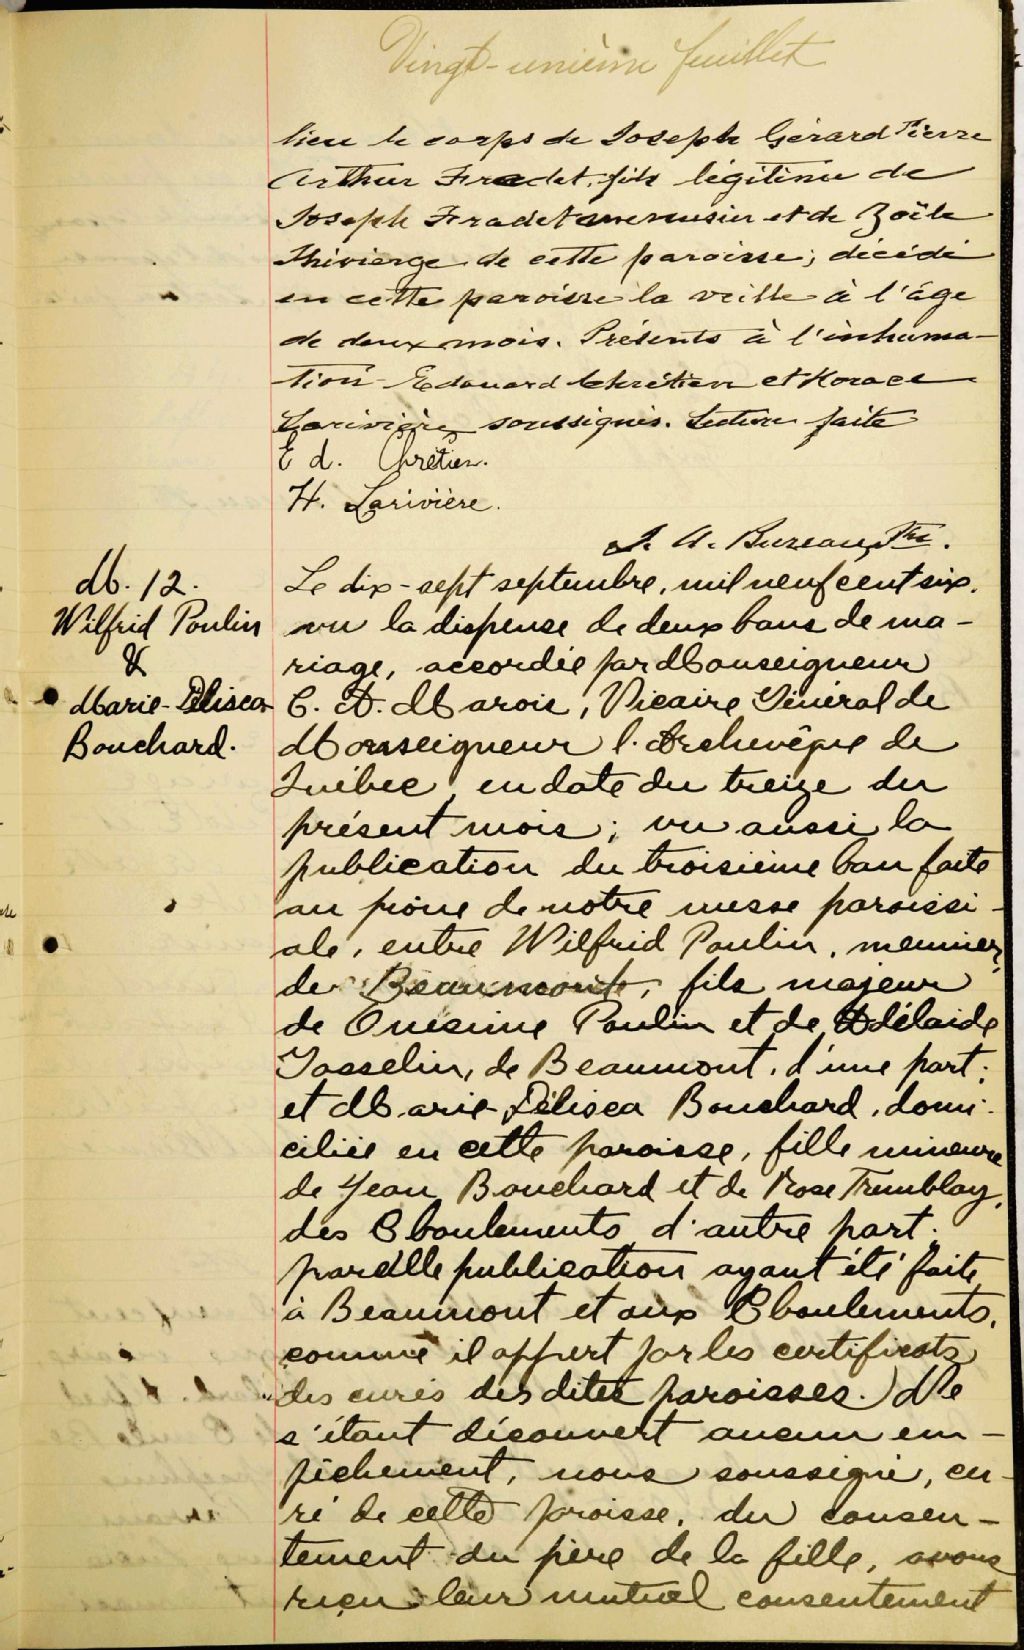 Vingt-unième feuillet
lieu le corps de Joseph Gérard Pierre
Arthur Fradet, fils légitime de
Joseph Fradet menuisier et de Zoële
Thivierge de cette paroisse; décédé
en cette paroisse la veille à l'âge
de deux mois. Présents à l'inhuma-
tion Edouard Chrétien et Horace
Larivière soussignés. Lecture faite
Ed. Chrétien.
H. Larivière.
J. A. Bureau, Ptre.
M. 12.
Wilfrid Poulin
&
Marie-Délisca
Bouchard.
Le dix-sept septembre, mil neuf cent six,
vu la dispense de deux bans de ma-
riage, accordée par Monseigneur
C. A. Marois, Vicaire Général de
Monseigneur l'Archevêque de
Québec, en date du treize du
présent mois; vu aussi la
publication du troisième ban faite
au prône de notre messe paroissi-
ale, entre Wilfrid Poulin, meunier,
de Beaumont, fils majeur
de Onesime Poulin et de Adélaide
Gosselin, de Beaumont, d'une part;
et Marie-Délisca Bouchard, domi-
ciliée en cette paroisse, fille mineure
de Jean Bouchard et de Rose Tremblay,
des Eboulements, d'autre part;
pareille publication ayant été faite
à Beaumont et aux Eboulements,
comme il appert par les certificats
des curés des dites paroisses. Ne
s'étant découvert aucun em-
pêchement, nous soussigné, cu-
ré de cette paroisse, du consen-
tement du père de la fille, avons
reçu leur mutuel consentement